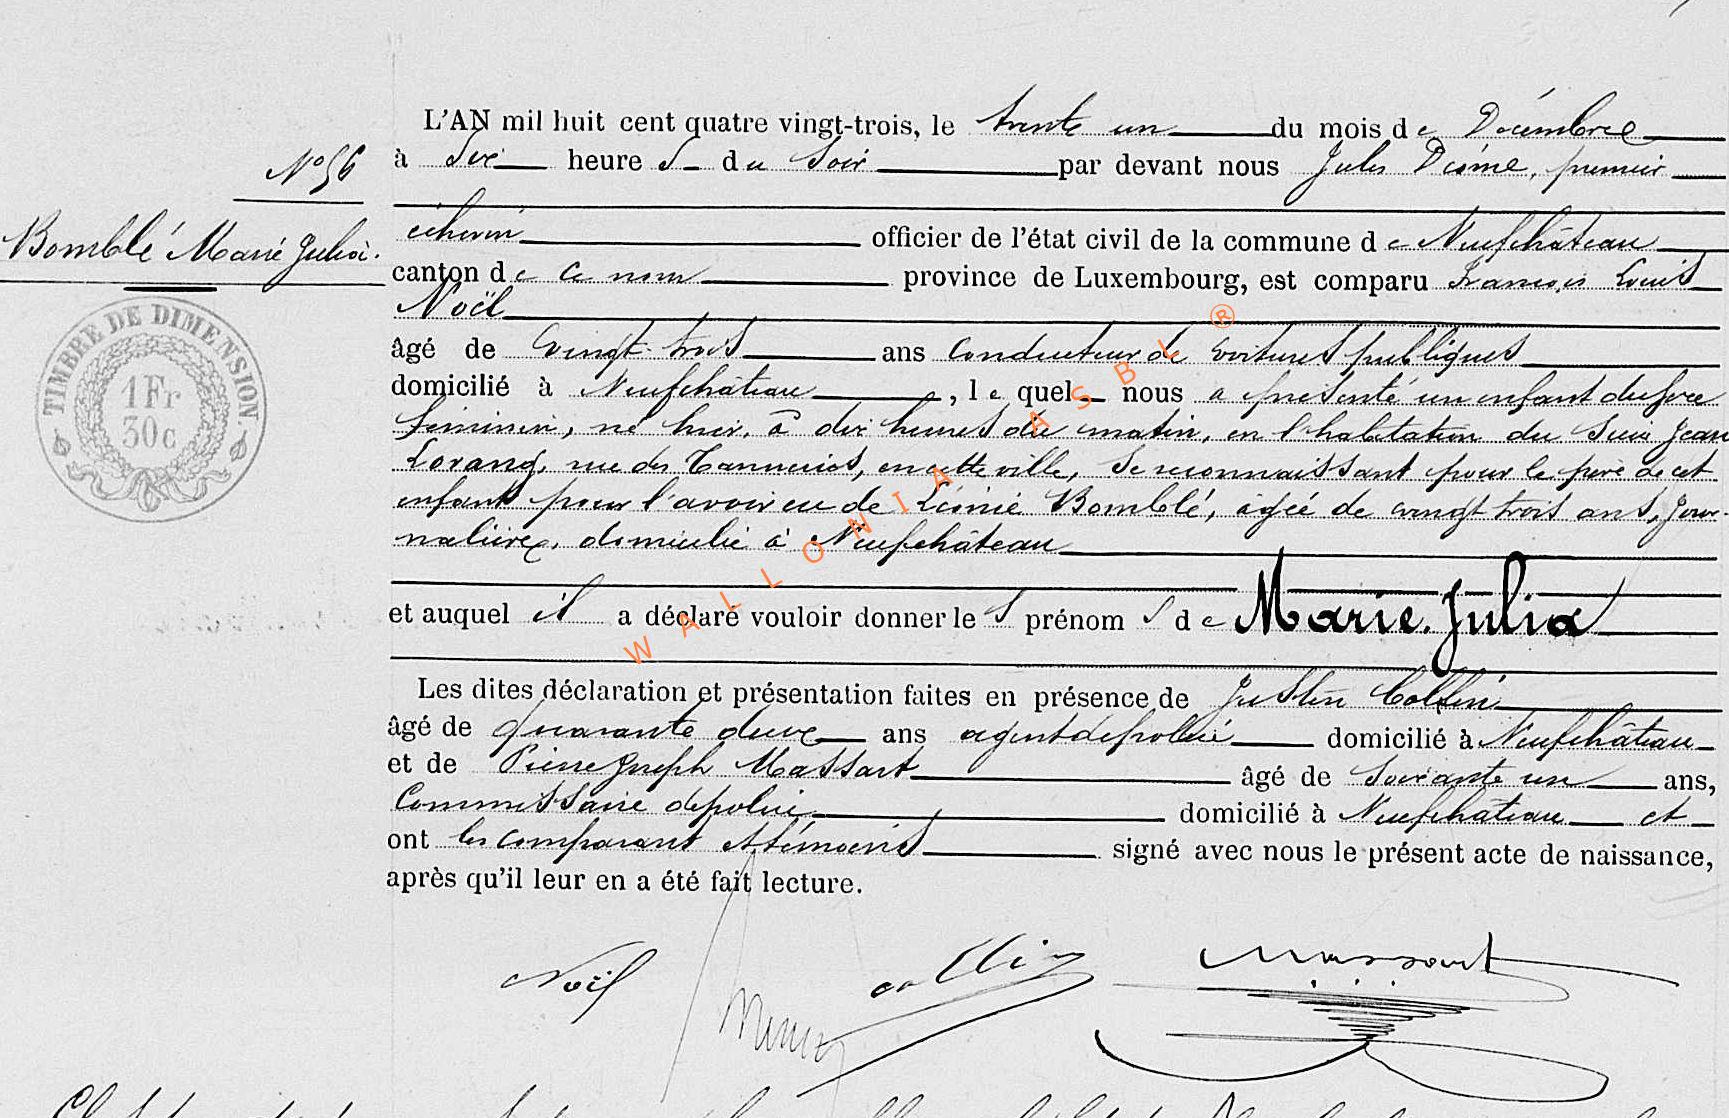 L'AN mil huit cent quatre vingt-trois, le trente un du mois de Décembre
à Six heures du Soir par devant nous Jules premier
No 56
échevin officier de l'état civil de la commune de Neufchâteau
Bomblé Marie Julia.
canton de ce nom province de Luxembourg, est comparu François Louis
Noël
âgé de vingt trois ans conducteur de voitures publiques
domicilié à Neufchâteau, lequel nous a présenté un enfant du sexe
féminin, né hier, à dix heures du matin, en l'habitation du Sieur Jean
Lorang, rue des Tanneries, en cette ville, se reconnaissant pour le père de cet
enfant pour l'avoir eu de Léonie Bomblé, âgée de vingt trois ans, jour-
nalière, domicilié à Neufchâteau
et auquel il a déclaré vouloir donner les prénoms de Marie Julia
Les dites déclaration et présentation faites en présence de Justin Collin
âgé de quarante deux ans agent de police domicilié à Neufchâteau
et de Pierre Joseph Massart âgé de soixante un ans,
Commissaire de police domicilié à Neufchâteau et
ont les comparant et témoins signé avec nous le présent acte de naissance,
après qu'il leur en a été fait lecture.
Noël Collin Massart
TIMBRE DE DIMENSION
1 Fr
30c
WALLONIA ASBL ®